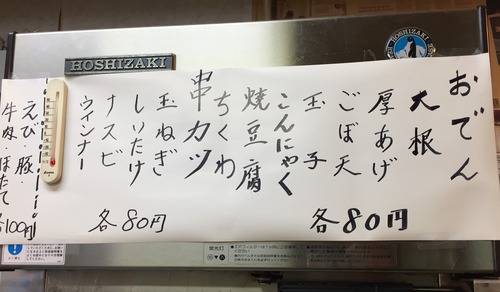 HOSHIZAKI
HOSHIZAKI
おでん
大根
厚あげ
ごぼ天
玉子
こんにゃく
焼豆腐
ちくわ
各80円
串カツ
玉ねぎ
しいたけ
ナスビ
ウインナー
各80円
えび・豚・
牛肉・ほたて
各100円
蛍光灯